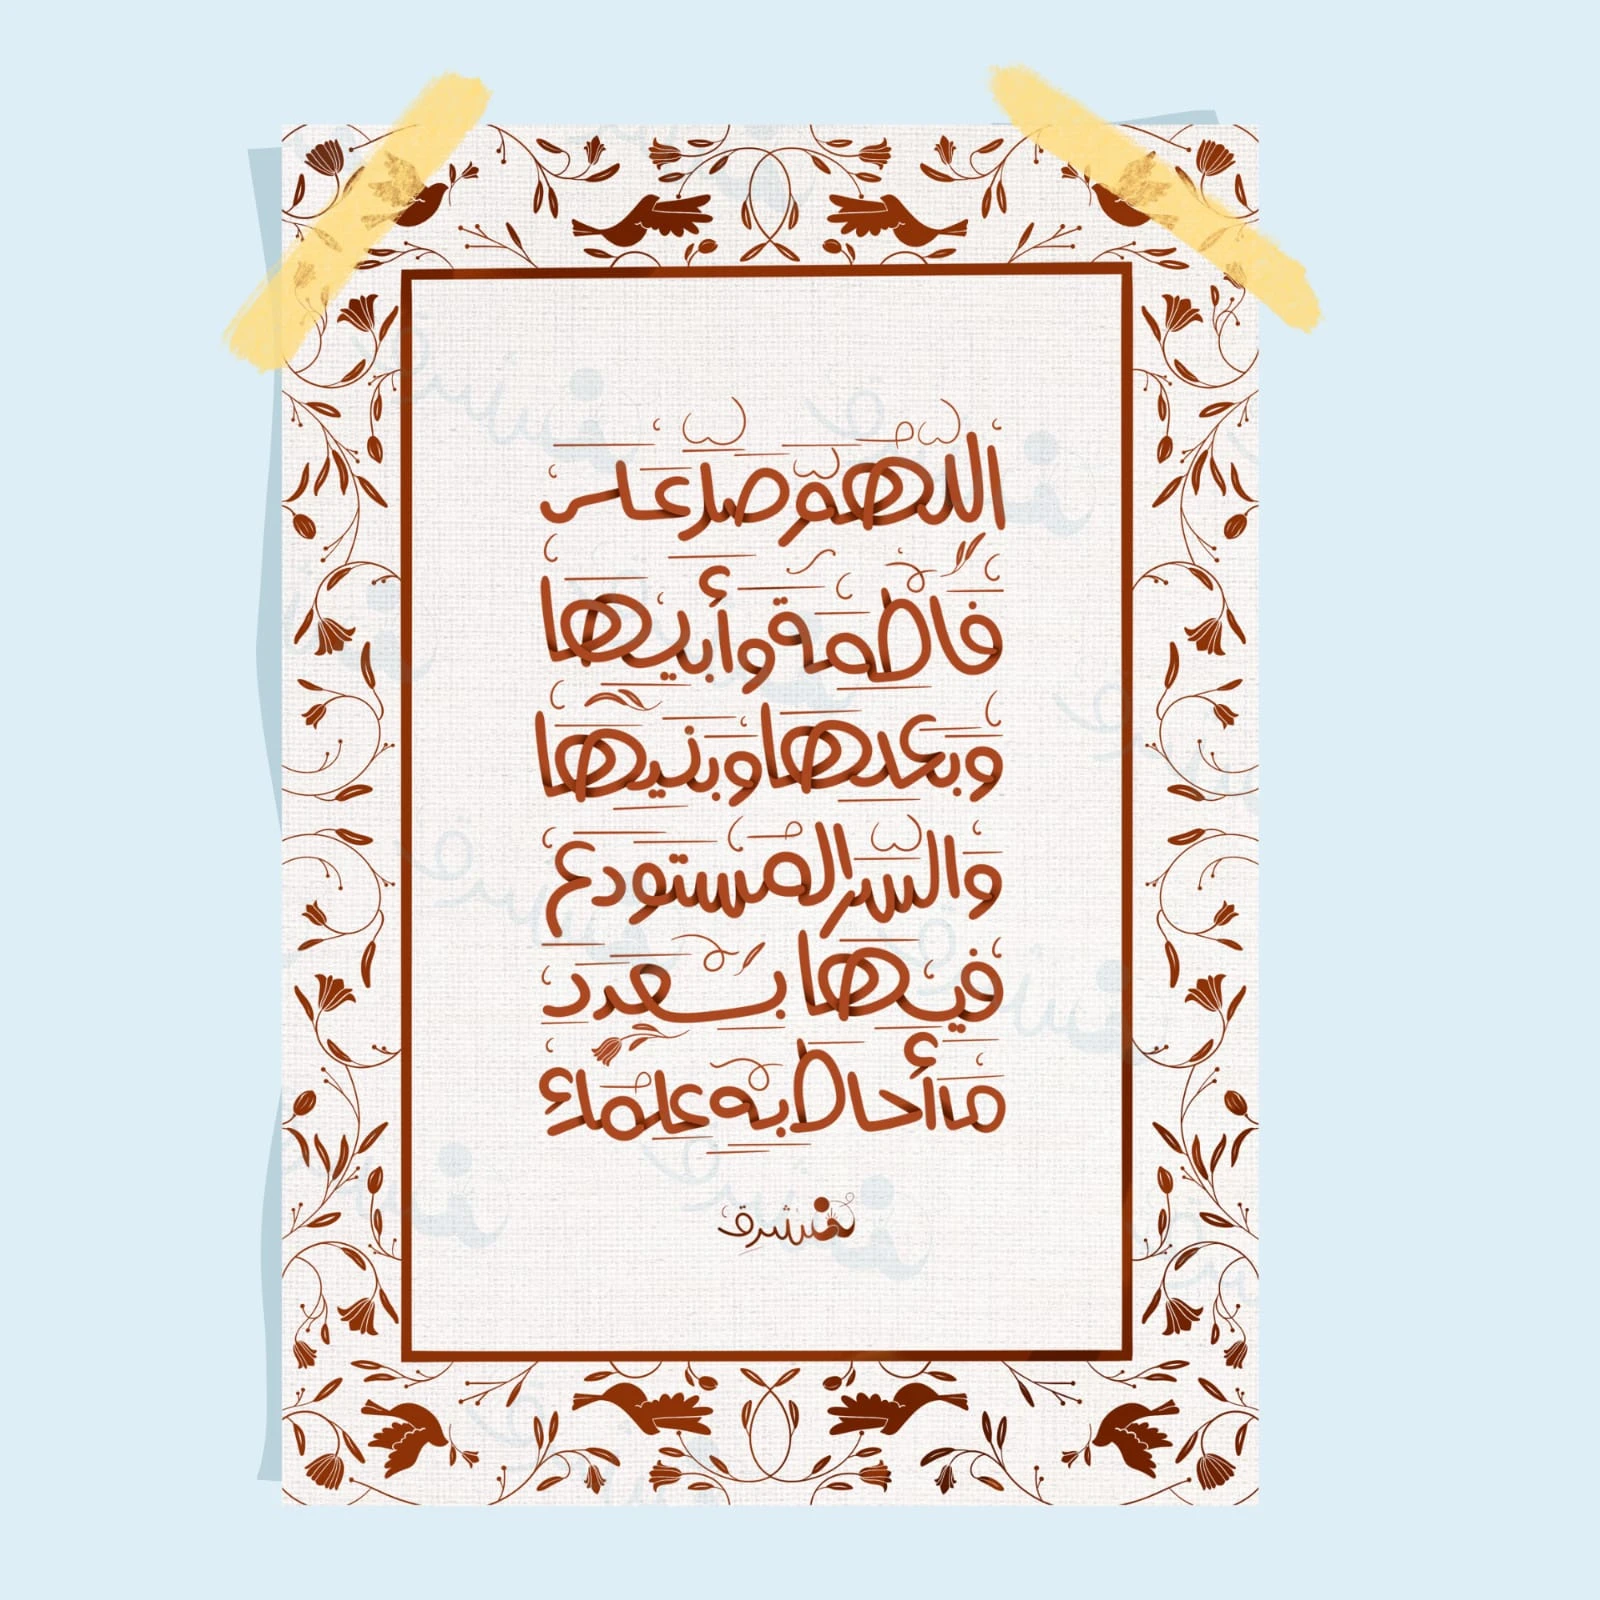 اللهم صل على
فاطمة وأبيها
وبعلها وبنيها
والسر المستودع
فيها بعدد
ما أحاط به علمك